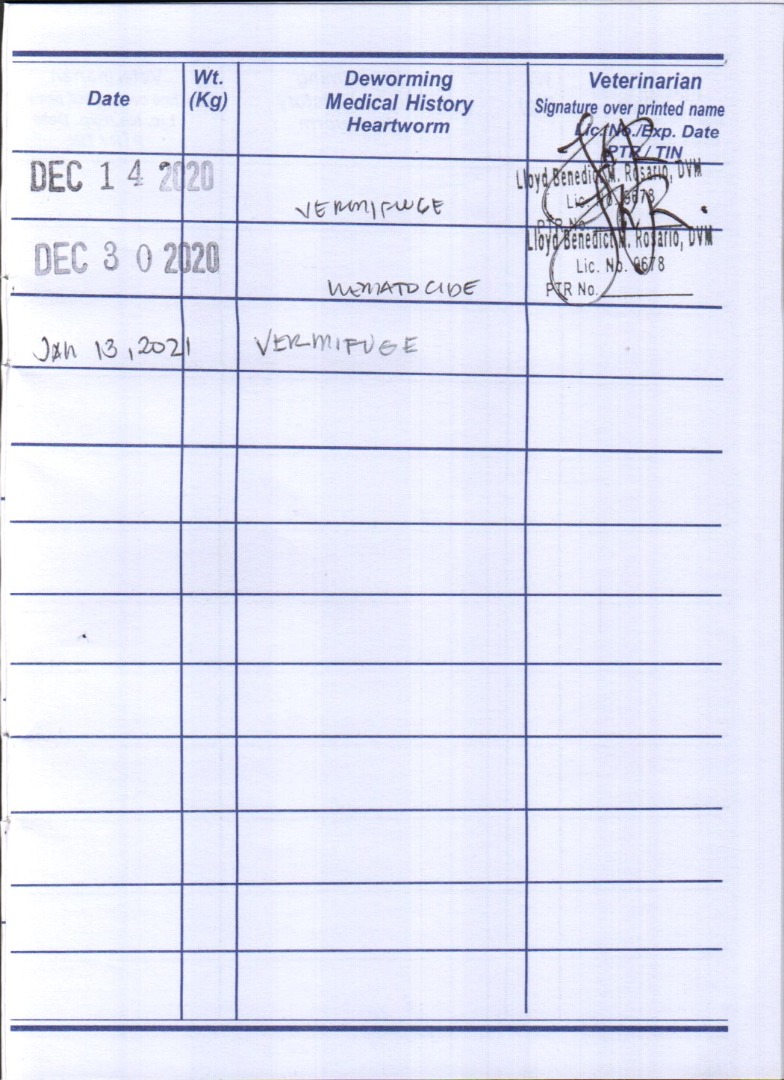 Date
Wt.
(Kg)
Deworming
Medical History
Heartworm
Veterinarian
Signature over printed name
Lic. No./Exp. Date
PTR / TIN
DEC 14 2020
VERMIFUGE
Lloyd Benedict M. Rosario, DVM
Lic. No. 9678
PTR No.
DEC 30 2020
NEMATOCIDE
Lloyd Benedict M. Rosario, DVM
Lic. No. 9678
PTR No.
Jan 13, 2021
VERMIFUGE